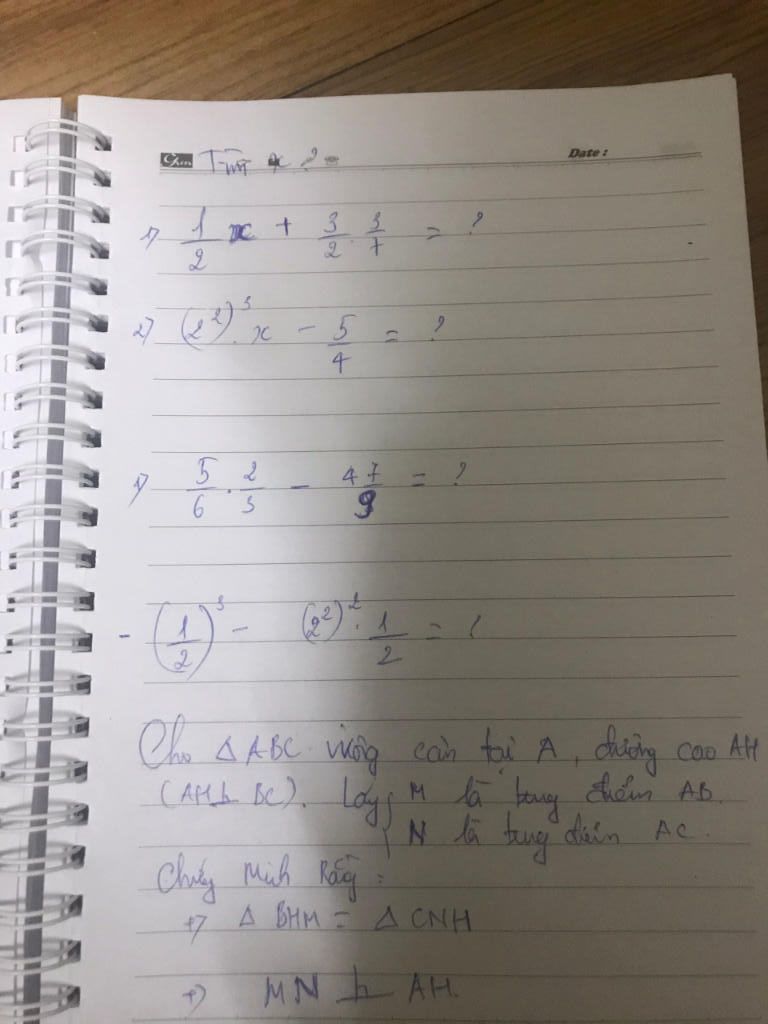 Tìm x ?
Date :
1) 1/2 x + 3/2 . 3/7 = ?
2) (2^2)^3 . x - 5/4 = ?
1) 5/6 . 2/3 - 47/9 = ?
- (1/2)^3 - (2^2)^2 . 1/2 = ?
Cho Δ ABC vuông cân tại A, đường cao AH
(AH ⊥ BC). Lấy { M là trung điểm AB.
N là trung điểm AC.
Chứng Minh Rằng :
+) Δ BHM = Δ CNH
+) MN ⊥ AH.